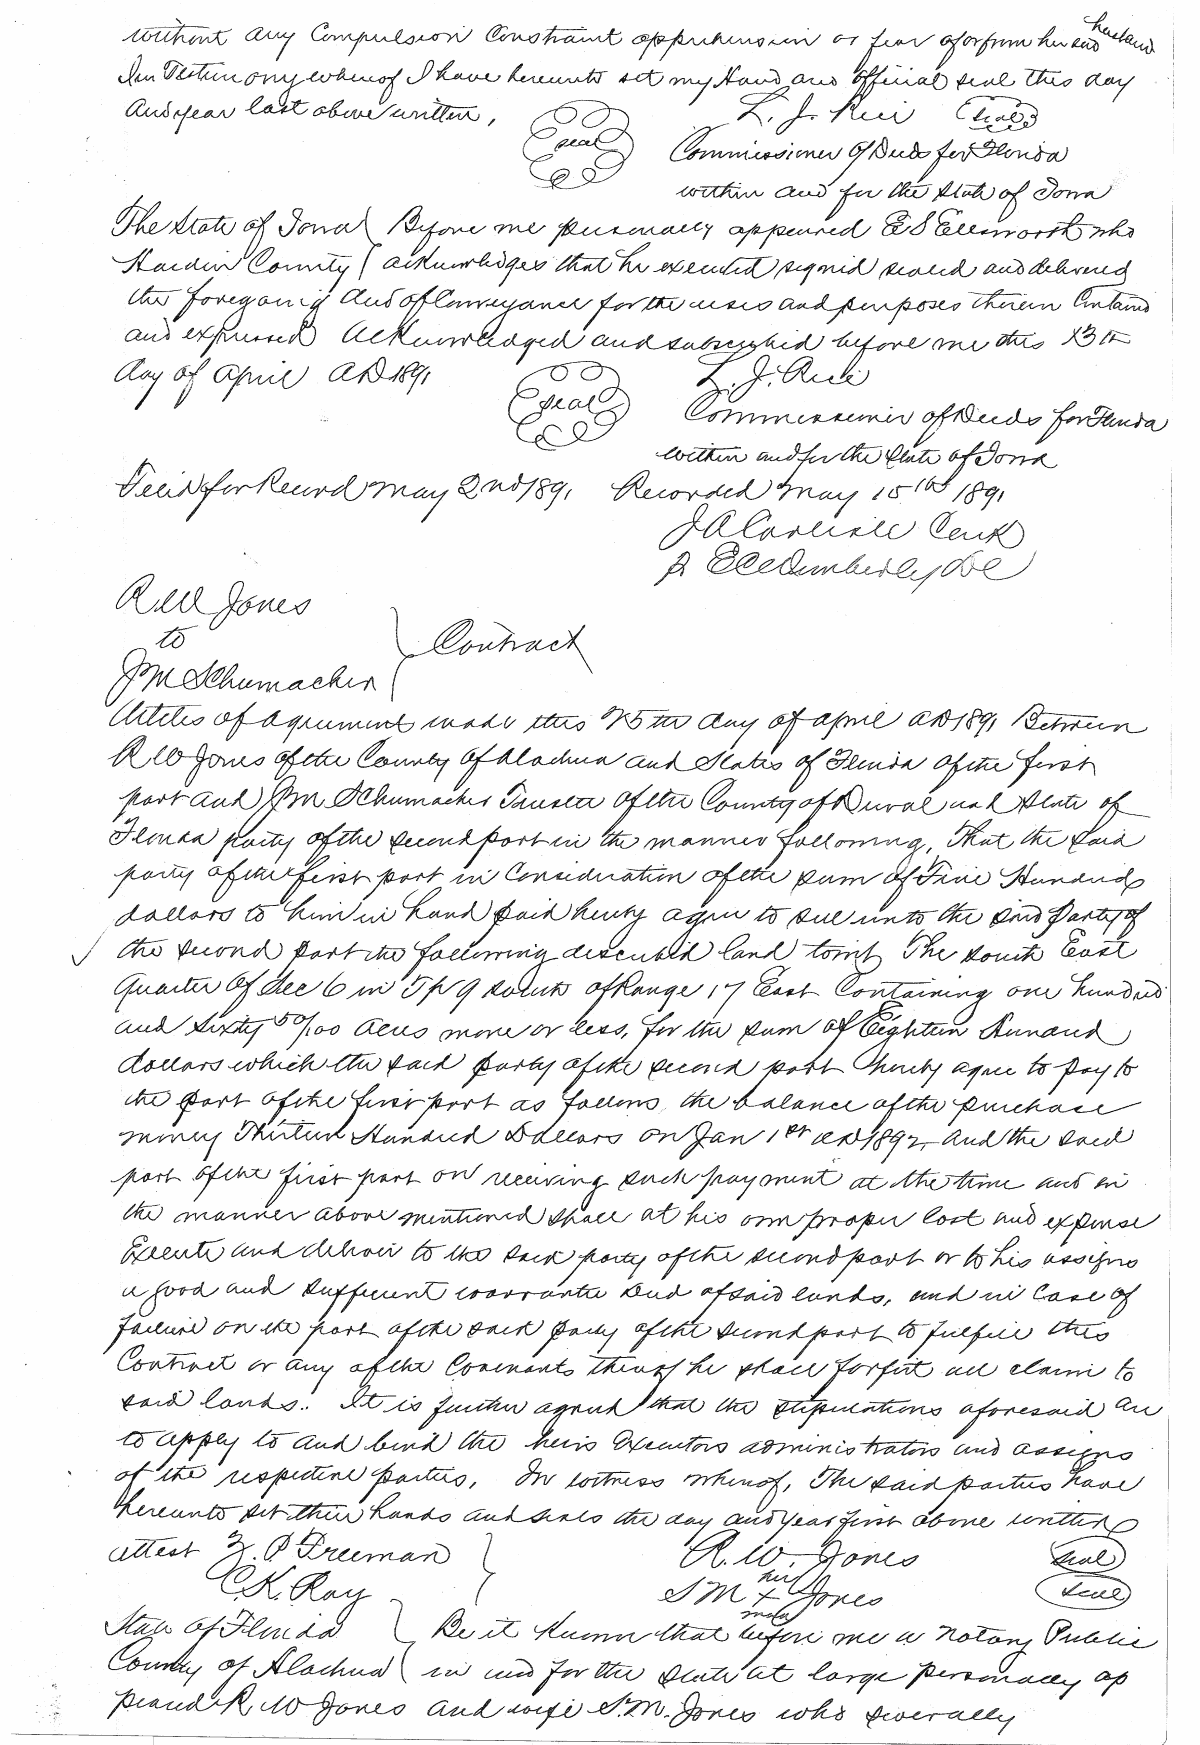 without any Compulsion Constraint apprehension or fear of or from her said husband
In Testimony whereof I have hereunto set my Hand and Official seal this day
And year last above written, L. J. Rice (Seal)
Seal Commissioner of Deeds for Florida
within and for the State of Iowa
The State of Iowa Before me personally appeared E S Ellsworth who
Hardin County acknowledges that he executed signed sealed and delivered
the foregoing deed of Conveyance for the uses and purposes therein Contained
and expressed Acknowledged and subscribed before me this 23th
day of April AD 1891 L. J. Rice
Seal Commissioner of Deeds for Florida
within and for the State of Iowa
Filed for Record May 2nd 1891 Recorded May 15th 1891
J A Carlisle Clerk
DC
R W Jones
to
Contract
J M Schumacher
Articles of agreement made this 25th day of April AD 1891 Between
R W Jones of the County of Alachua and States of Florida of the first
part and J M Schumacher Trustee of the County of Duval and State of
Florida party of the second part in the manner following, That the said
party of the first part in Consideration of the sum of Five Hundred
dollars to him in hand paid hereby agree to sell unto the said Party of
the second part the following described land towit The South East
Quarter of Sec 6 in Tp 9 South of Range 17 East Containing one hundred
and Sixty 50/100 Acres more or less, for the sum of Eighteen Hundred
dollars which the said party of the second part hereby agree to pay to
the part of the first part as follows, the balance of the purchase
money Thirteen Hundred Dollars on Jan 1st AD 1892 And the said
part of the first part on receiving such payment at the time and in
the manner above mentioned shall at his own proper Cost and expense
Execute and deliver to the said party of the second part or to his assigns
a good and sufficient warrantee Deed of said lands, and in Case of
failure on the part of the said party of the second part to fulfill this
Contract or any of the Covenants thereof he shall forfit all claim to
said lands. It is further agreed that the stipulations aforesaid are
to apply to and bind the heirs Executors administrators and assigns
of the respective parties. In witness whereof, The said parties have
hereunto set their hands and seals the day and year first above written
attest Z. P Freeman R. W. Jones Seal
her
C. K. Ray S M x Jones Seal
mark
State of Florida Be it Known that before me a Notary Public
County of Alachua in and for the State at large personally ap
peared R. W Jones and wife S. M. Jones who severally